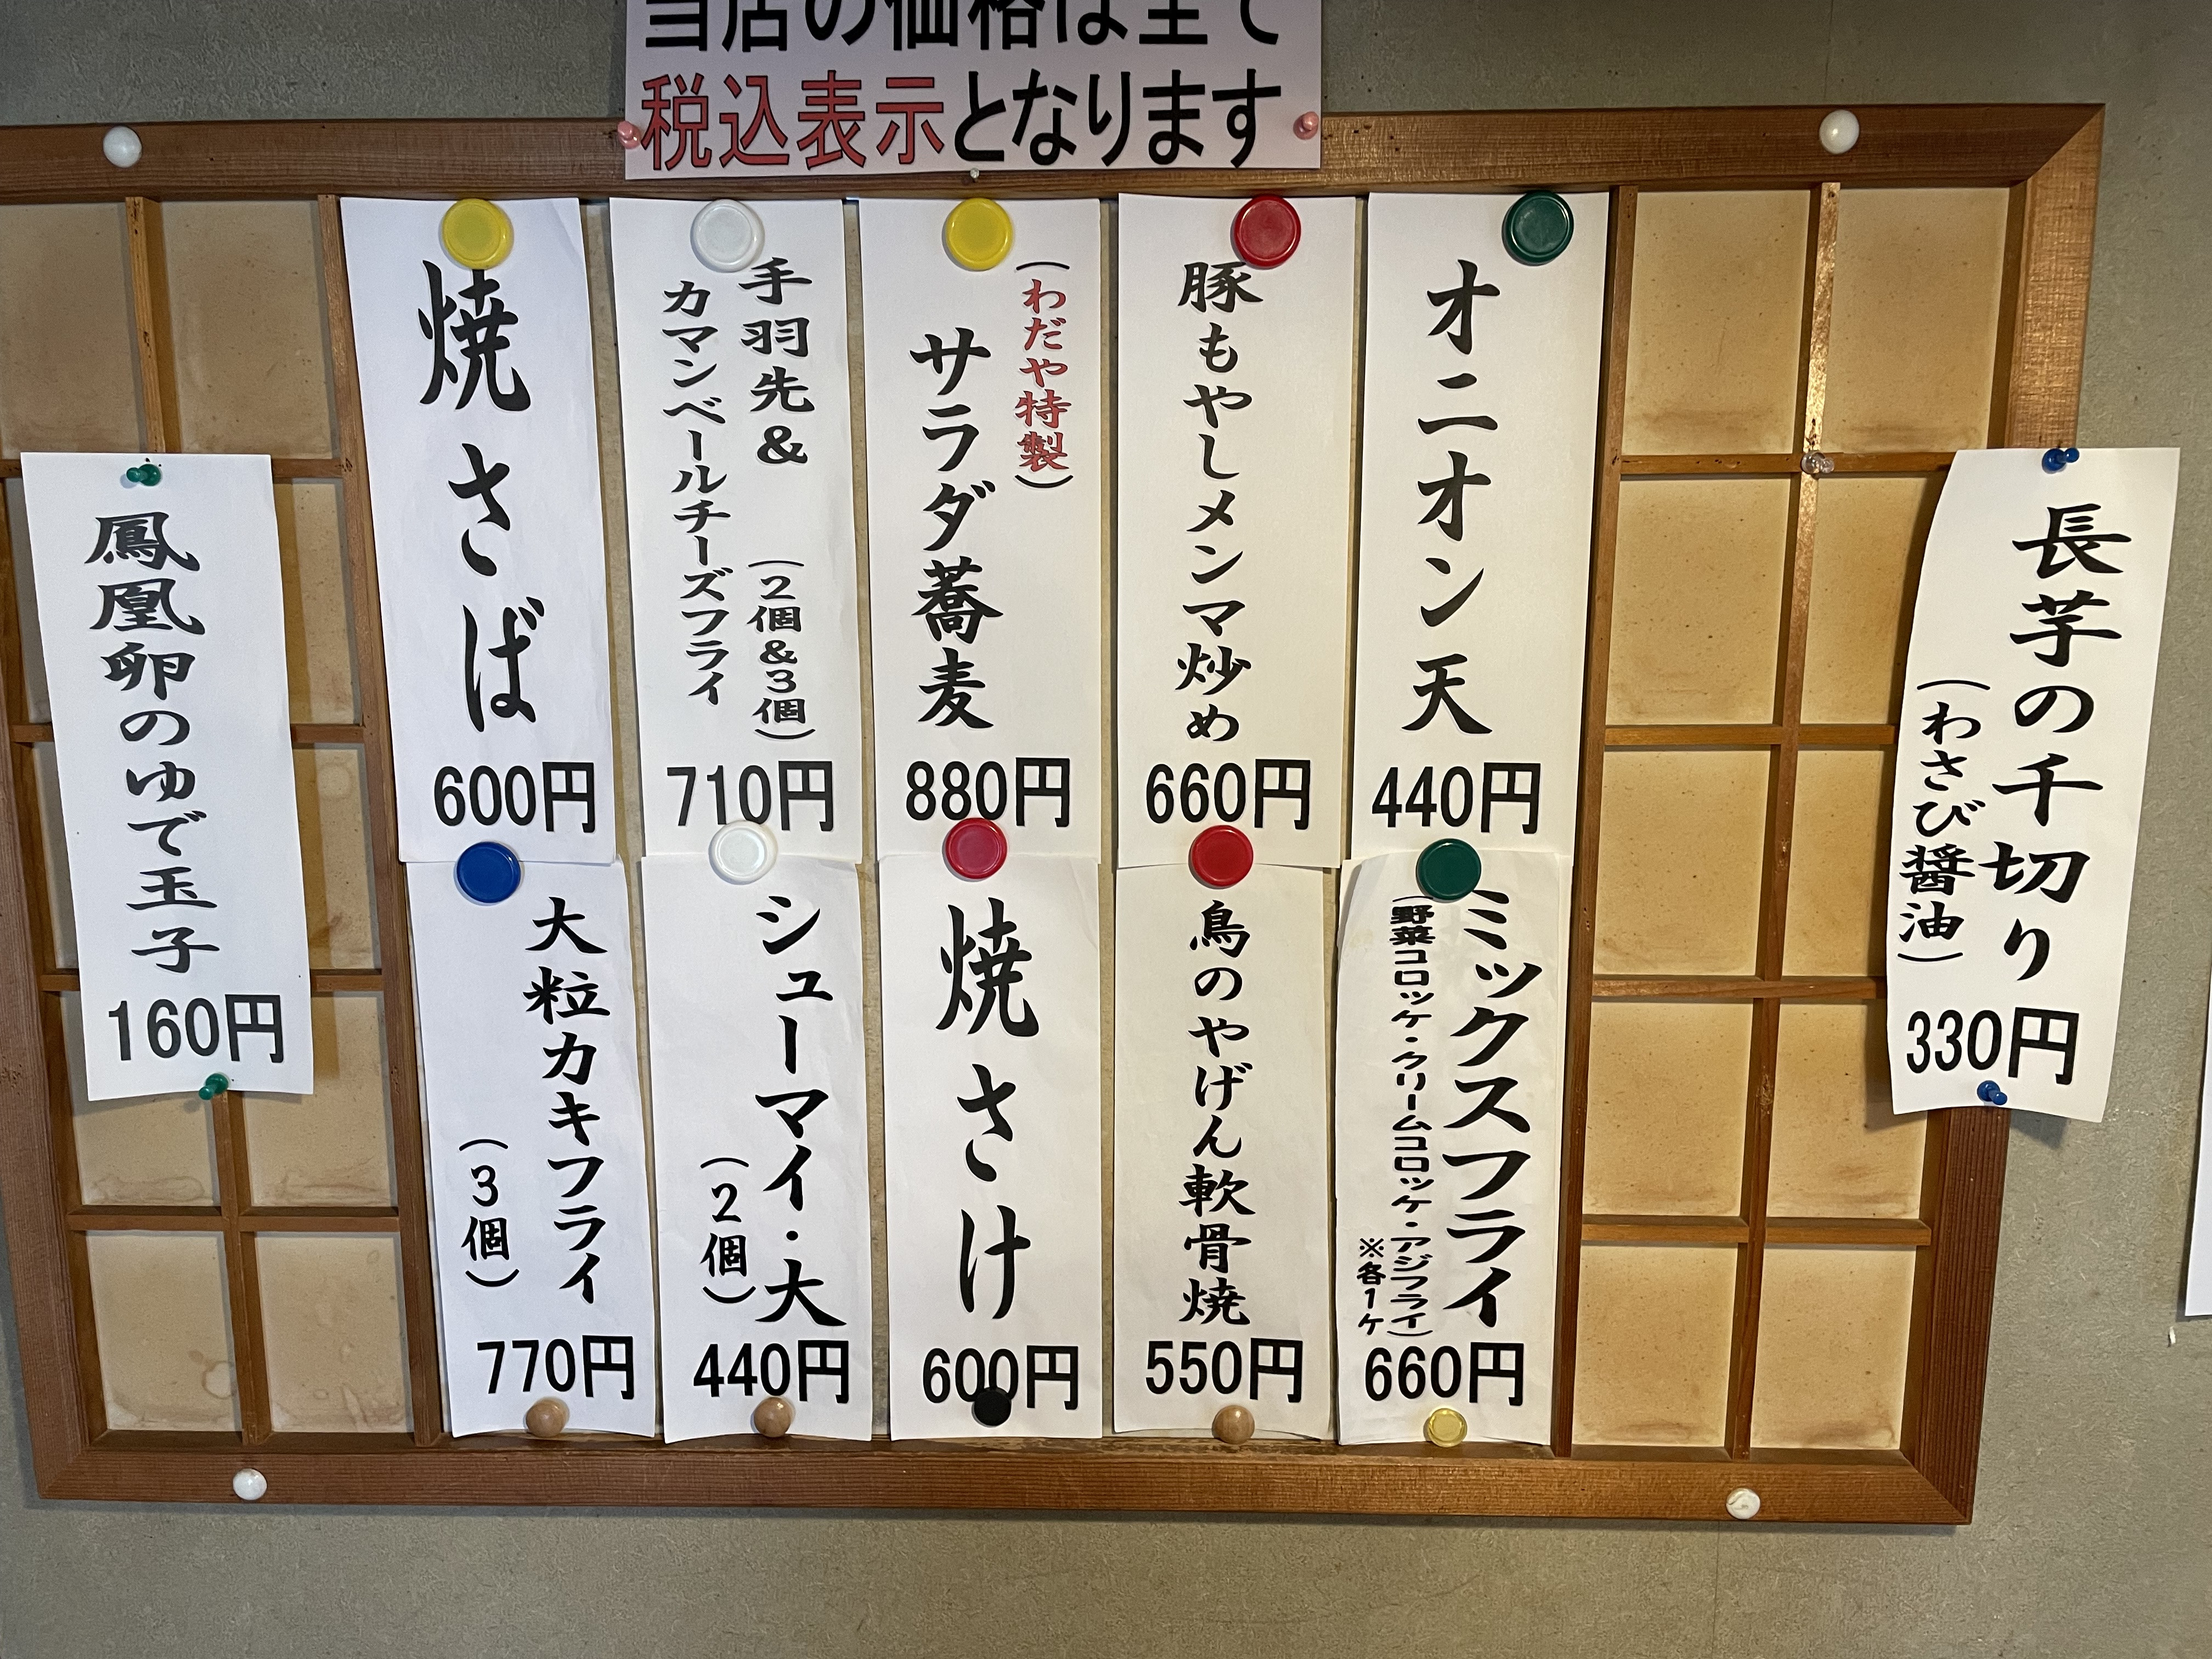 当店の価格は全て
税込表示となります
長芋の千切り
(わさび醤油)
330円
オニオン天
440円
豚もやしメンマ炒め
660円
(わだや特製)
サラダ蕎麦
880円
手羽先&(2個&3個)
カマンベールチーズフライ
710円
焼さば
600円
ミックスフライ
(野菜コロッケ・クリームコロッケ・アジフライ)
※各1ヶ
660円
鳥のやげん軟骨焼
550円
焼さけ
600円
シューマイ・大
(2個)
440円
大粒カキフライ
(3個)
770円
鳳凰卵のゆで玉子
160円